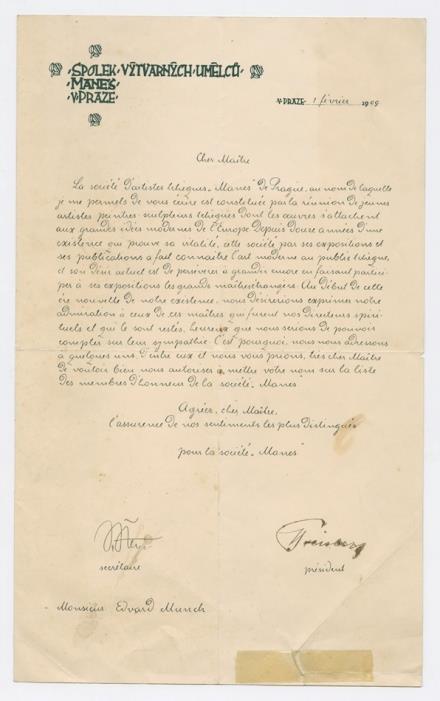 SPOLEK VÝTVARNÝCH UMĚLCŮ
MANES
V PRAZE
V PRAZE 1 février 19
Cher Maître
La société d'artistes tchèques „Manes" de Prague, au nom de laquelle
je me permets de vous écrire est constituée par la réunion de jeunes
artistes peintres-sculpteurs tchèques dont les œuvres s'attachent
aux grandes idées modernes de l'Europe. Depuis douze années d'une
existence qui prouve sa vitalité, cette société par ses expositions et
ses publications a fait connaître l'art moderne au public tchèque,
et son désir actuel est de persévérer à grandir encore en faisant partici-
per à ses expositions les grands maîtres étrangers. Au début de cette
ère nouvelle de notre existence, nous désirerions exprimer notre
admiration à ceux de ces maîtres qui furent nos directeurs spiri-
tuels et qui le sont restés, heureux que nous serions de pouvoir
compter sur leur sympathie. C'est pourquoi, nous nous adressons
à quelques uns d'entre eux et nous vous prions, très cher Maître
de vouloir bien nous autoriser à mettre votre nom sur la liste
des membres d'honneur de la société „Manes"
Agréez, cher Maître,
l'assurence de nos sentiments les plus distingués
pour la société „Manes"
secrétaire
président
Monsieur Edvard Munch